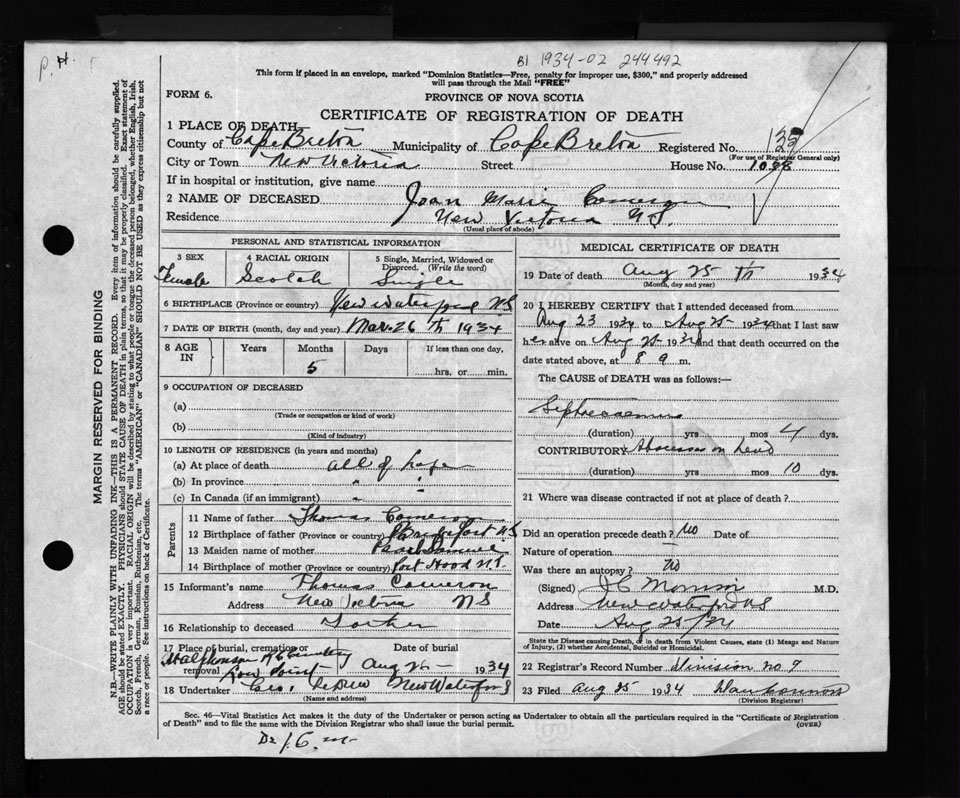 P. H.
B1 1934-02 244492
This form if placed in an envelope, marked "Dominion Statistics—Free, penalty for improper use, $300," and properly addressed
will pass through the Mail "FREE"
FORM 6.
PROVINCE OF NOVA SCOTIA
CERTIFICATE OF REGISTRATION OF DEATH
1 PLACE OF DEATH
County of Cape Breton Municipality of Cape Breton Registered No.
(For use of Registrar General only)
City or Town New Victoria Street House No. 1038
If in hospital or institution, give name
2 NAME OF DECEASED Joan Marie Cameron
Residence New Victoria N.S.
(Usual place of abode)
PERSONAL AND STATISTICAL INFORMATION
3 SEX Female
4 RACIAL ORIGIN Scotch
5 Single, Married, Widowed or Divorced. (Write the word) Single
6 BIRTHPLACE (Province or country) New Waterford N.S
7 DATE OF BIRTH (month, day and year) Mar. 26 th 1934
8 AGE IN Years Months Days If less than one day,
5 hrs. or min.
9 OCCUPATION OF DECEASED
(a)
(Trade or occupation or kind of work)
(b)
(Kind of industry)
10 LENGTH OF RESIDENCE (in years and months)
(a) At place of death all of life
(b) In province " "
(c) In Canada (if an immigrant)
Parents
11 Name of father Thomas Cameron
12 Birthplace of father (Province or country) N.S
13 Maiden name of mother
14 Birthplace of mother (Province or country) Port Hood N.S.
15 Informant's name Thomas Cameron
Address New Victoria N S
16 Relationship to deceased Father
17 Place of burial, cremation or removal Low Point
Date of burial Aug 1934
18 Undertaker New Waterford
(Name and address)
MEDICAL CERTIFICATE OF DEATH
19 Date of death Aug 25 th 1934
(Month, day and year)
20 I HEREBY CERTIFY that I attended deceased from
Aug 23 1934 to Aug 25 1934 that I last saw
her alive on Aug 25 1934 and that death occurred on the
date stated above, at 8 a m.
The CAUSE OF DEATH was as follows:
(duration) yrs mos 4 dys.
CONTRIBUTORY Abscesses on head
(duration) yrs mos 10 dys.
21 Where was disease contracted if not at place of death?
Did an operation precede death? No Date of
Nature of operation
Was there an autopsy? No
(Signed) M.D.
Address New Waterford NS
Date Aug 25/34
State the Disease causing Death, or in death from Violent Causes, state (1) Means and Nature
of Injury, (2) whether Accidental, Suicidal or Homicidal.
22 Registrar's Record Number Division no 9
23 Filed Aug 25 1934
(Division Registrar)
Sec. 46—Vital Statistics Act makes it the duty of the Undertaker or person acting as Undertaker to obtain all the particulars required in the "Certificate of Registration
of Death" and to file the same with the Division Registrar who shall issue the burial permit.
(OVER)
MARGIN RESERVED FOR BINDING
N.B.—WRITE PLAINLY WITH UNFADING INK—THIS IS A PERMANENT RECORD. Every item of information should be carefully supplied.
AGE should be stated EXACTLY. PHYSICIANS should STATE CAUSE OF DEATH in plain terms, so that it may be properly classified. Exact statement of
OCCUPATION is very important. RACIAL ORIGIN will be described by stating to what people or tongue the deceased person belonged, whether English, Irish,
Scotch, French, German, Russian, Ruthenian, etc. The terms "AMERICAN" or "CANADIAN" SHOULD NOT BE USED as they express citizenship but not
a race or people. See instructions on back of Certificate.